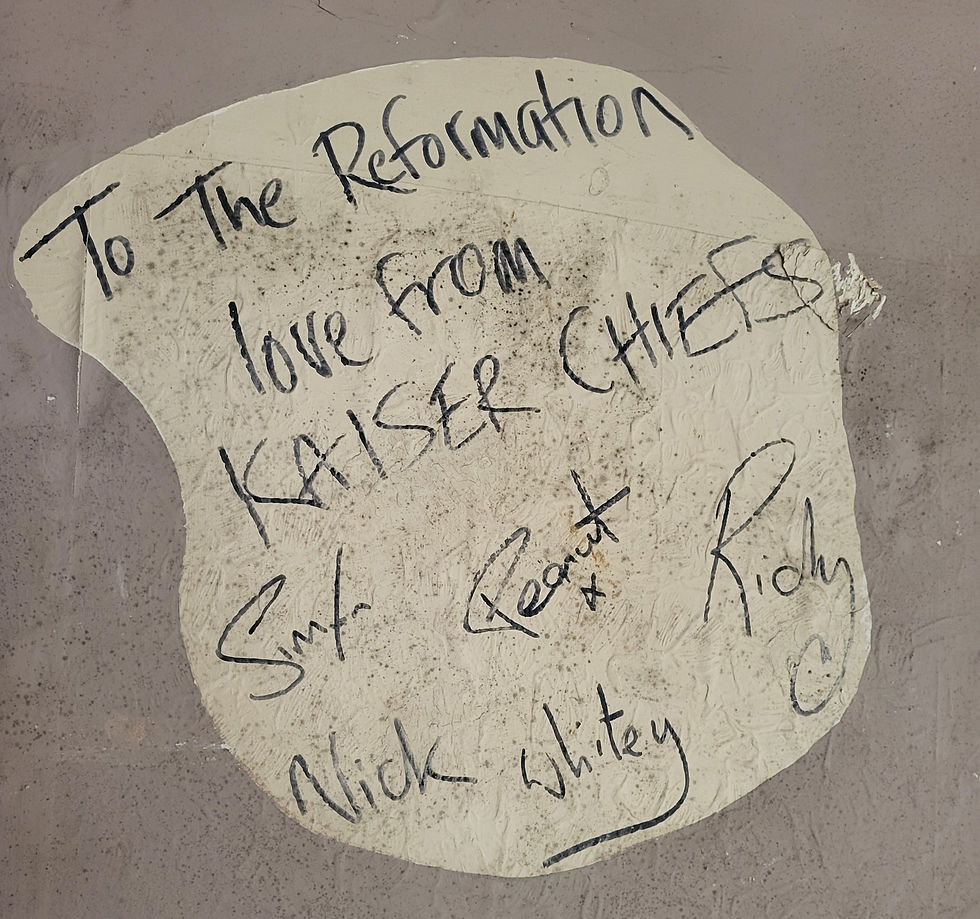 To The Reformation
love from
KAISER CHIEFS
Simon Peanut x Ricky
Nick Whitey